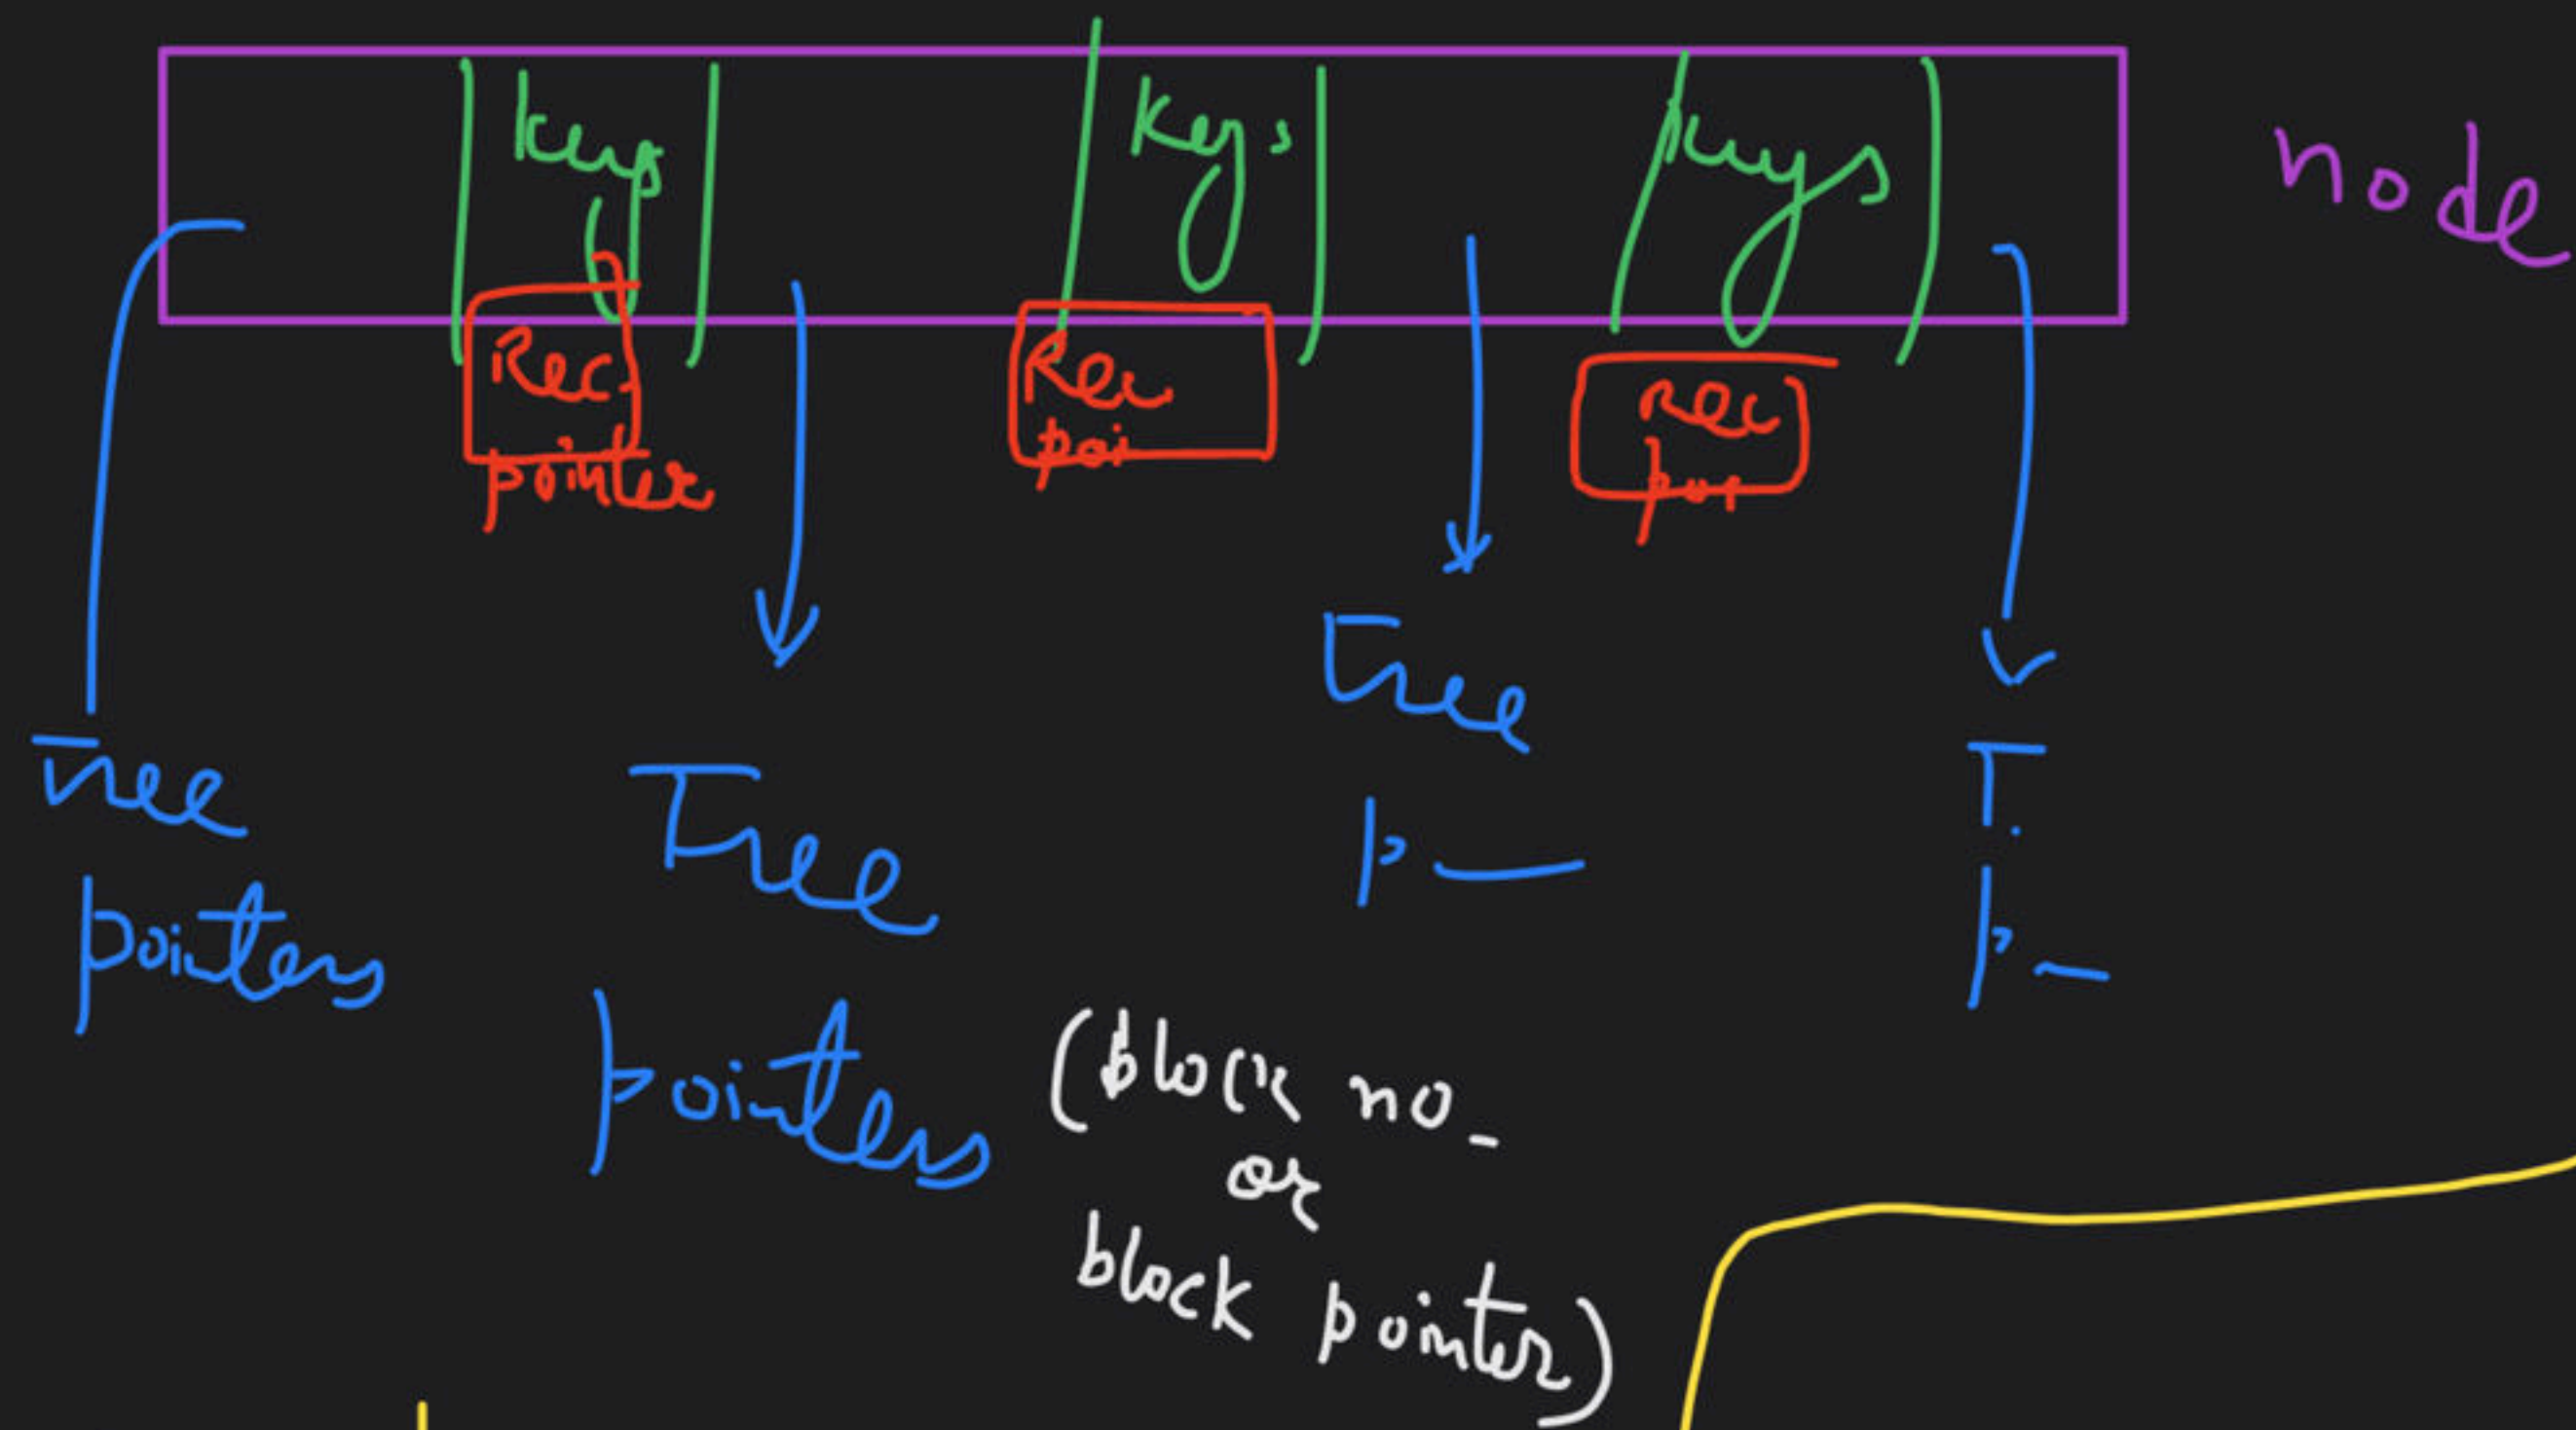 keys
keys
keys
node
Rec
pointer
Rec
poi
rec
Tree
pointers
Tree
pointers
Tree
p—
T.
p—
(block no.
or
block pointer)